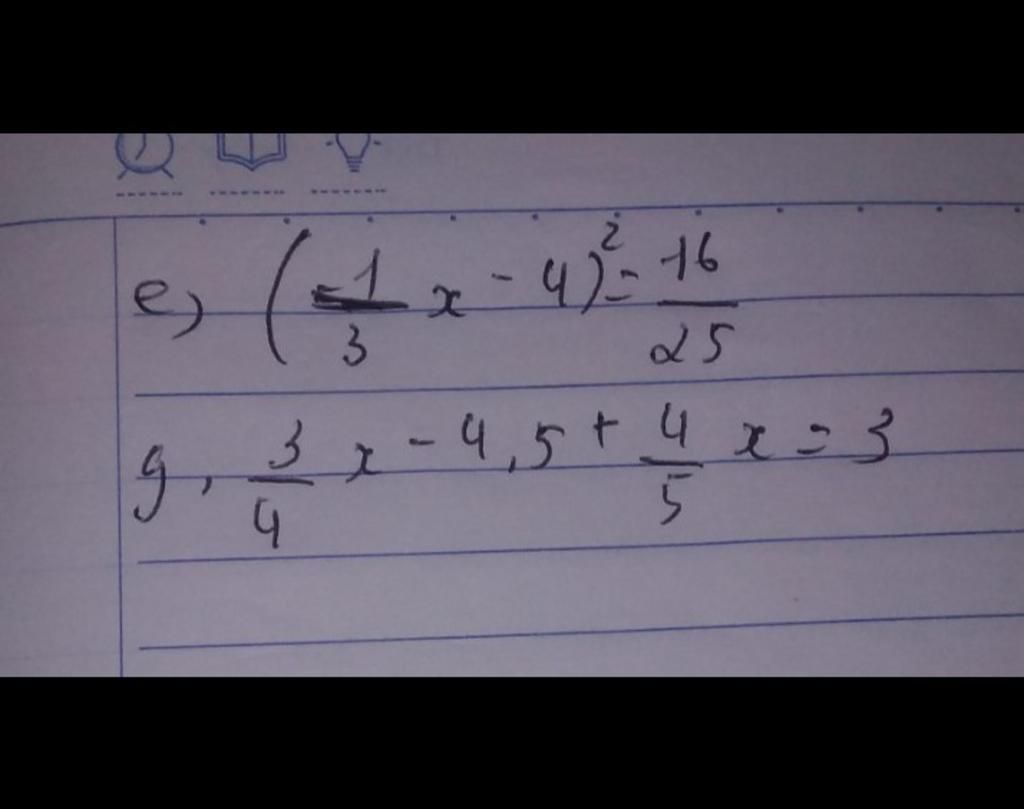 e) (-1/3 x - 4)² = 16/25
g, 3/4 x - 4,5 + 4/5 x = 3